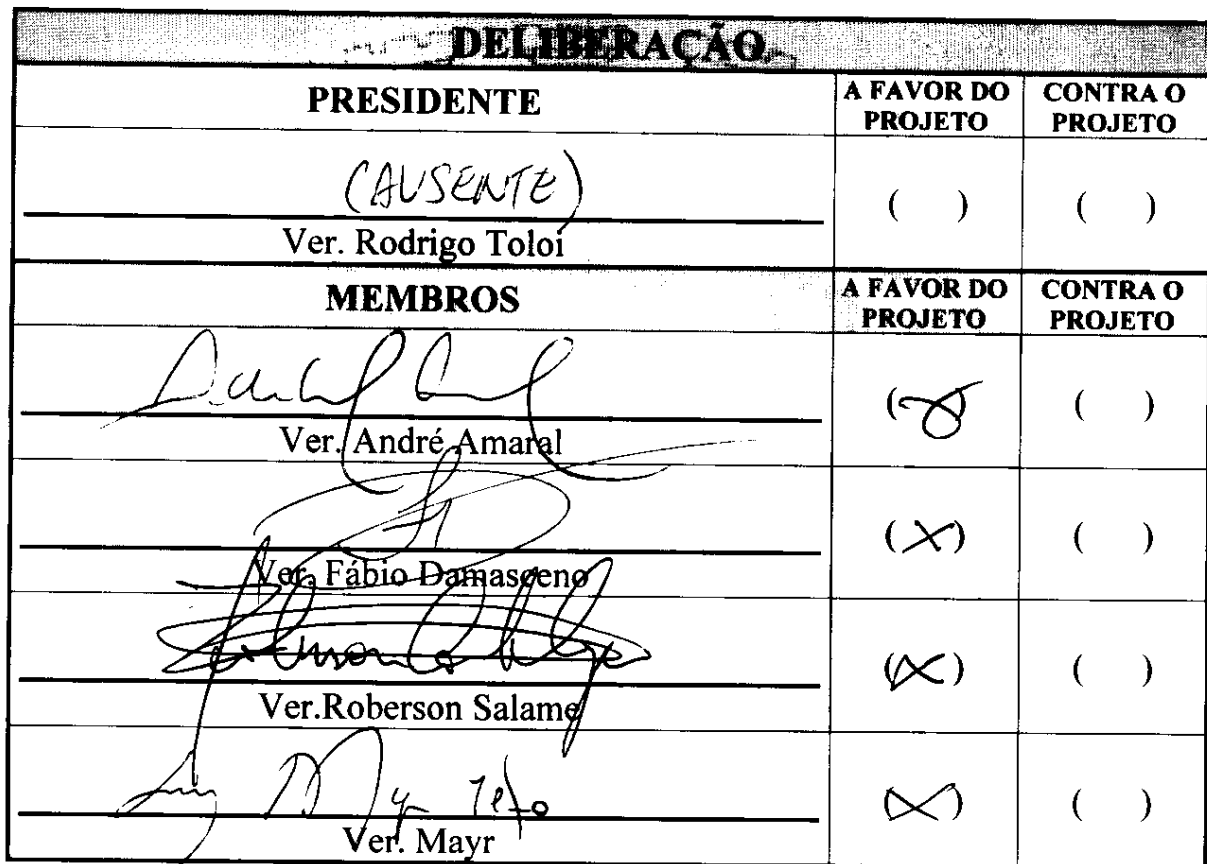 DELIBERAÇÃO
PRESIDENTE
A FAVOR DO PROJETO
CONTRA O PROJETO
(AUSENTE)
( )
( )
Ver. Rodrigo Toloi
MEMBROS
A FAVOR DO PROJETO
CONTRA O PROJETO
(X)
( )
Ver. André Amaral
(X)
( )
Ver. Fábio Damasceno
(X)
( )
Ver.Roberson Salame
(X)
( )
Ver. Mayr